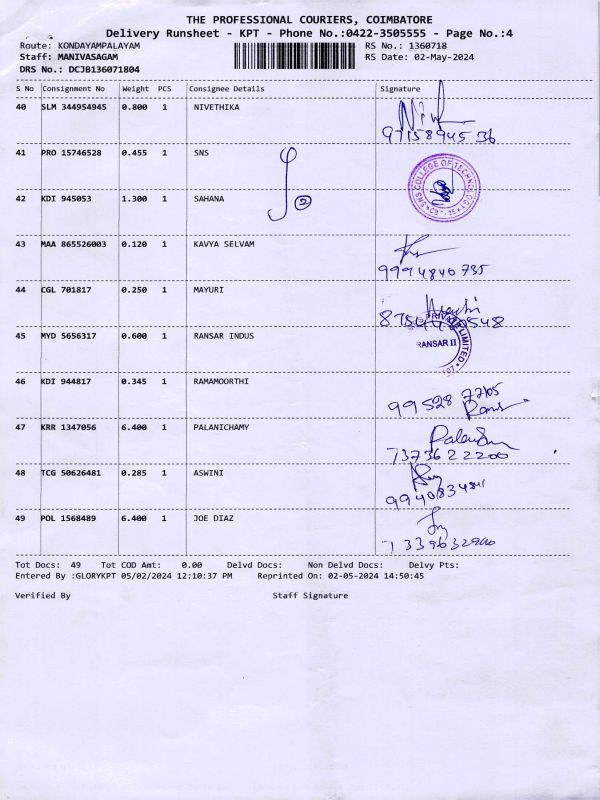 THE PROFESSIONAL COURIERS, COIMBATORE
Delivery Runsheet - KPT - Phone No.:0422-3505555 - Page No.:4
Route: KONDAYAMPALAYAM RS No.: 1360718
Staff: MANIVASAGAM RS Date: 02-May-2024
DRS No.: DCJB136071804
S No Consignment No Weight PCS Consignee Details Signature
40 SLM 344954945 0.800 1 NIVETHIKA
9715894536
41 PRO 15746528 0.455 1 SNS
SNS COLLEGE OF TECHNOLOGY
42 KDI 945053 1.300 1 SAHANA
2
43 MAA 865526003 0.120 1 KAVYA SELVAM
9994840735
44 CGL 701817 0.250 1 MAYURI
45 MYD 5656317 0.600 1 RANSAR INDUS
RANSAR II
LIMITED
46 KDI 944817 0.345 1 RAMAMOORTHI
99528 77105
47 KRR 1347056 6.400 1 PALANICHAMY
7373622200
48 TCG 50626481 0.285 1 ASWINI
9940834841
49 POL 1568489 6.400 1 JOE DIAZ
Tot Docs: 49 Tot COD Amt: 0.00 Delvd Docs: Non Delvd Docs: Delvy Pts:
Entered By :GLORYKPT 05/02/2024 12:10:37 PM Reprinted On: 02-05-2024 14:50:45
Verified By Staff Signature